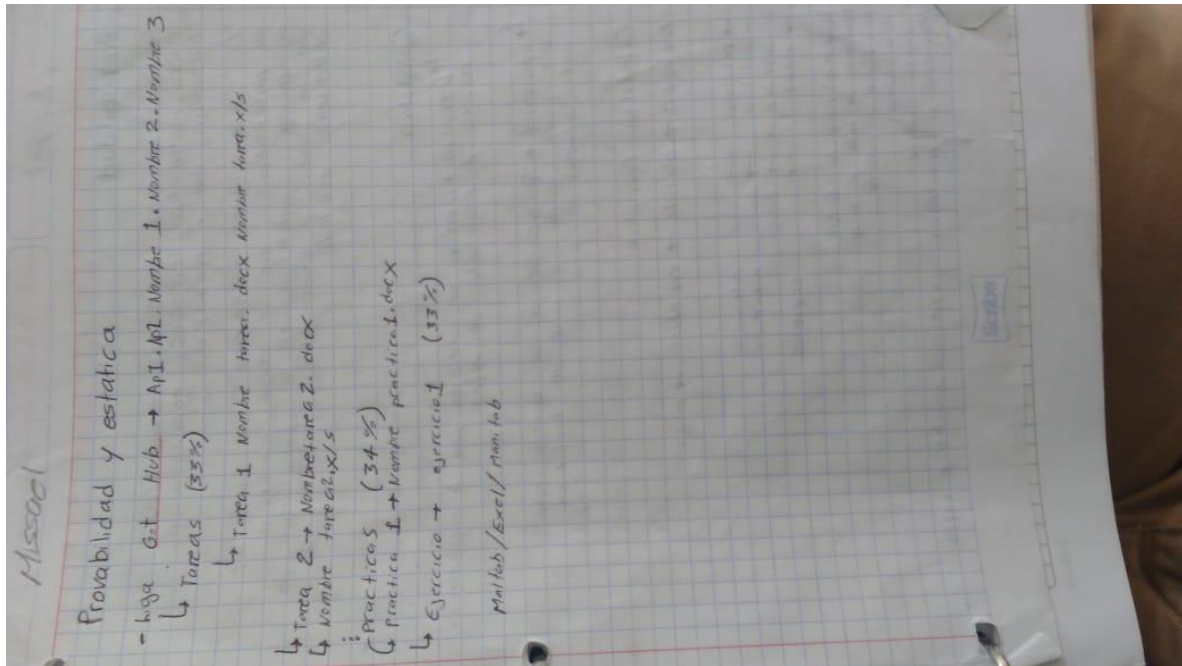 Missael
Provabilidad y estatica
- Liga Git Hub → Ap1.Ap2.Nombre 1.Nombre 2.Nombre 3
↳ Tareas (33%)
↳ Tarea 1 Nombre tarea.docx Nombre tarea.xls
↳ Tarea 2 → Nombretarea2.docx
↳ Nombre tarea2.xls
⋮
(Practicas (34%)
↳ Practica 1 → Nombre practica1.docx
↳ Ejercicio → ejercicio1 (33%)
Matlab/Exel/Manitab
Scribe